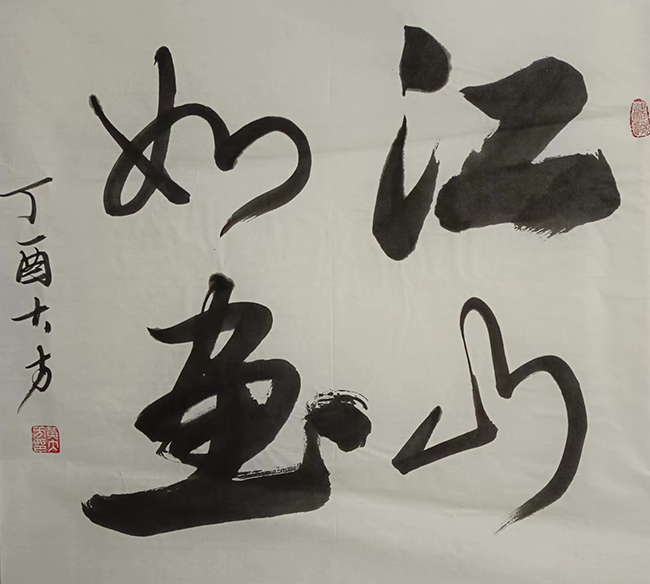 江山
如画
丁酉大方